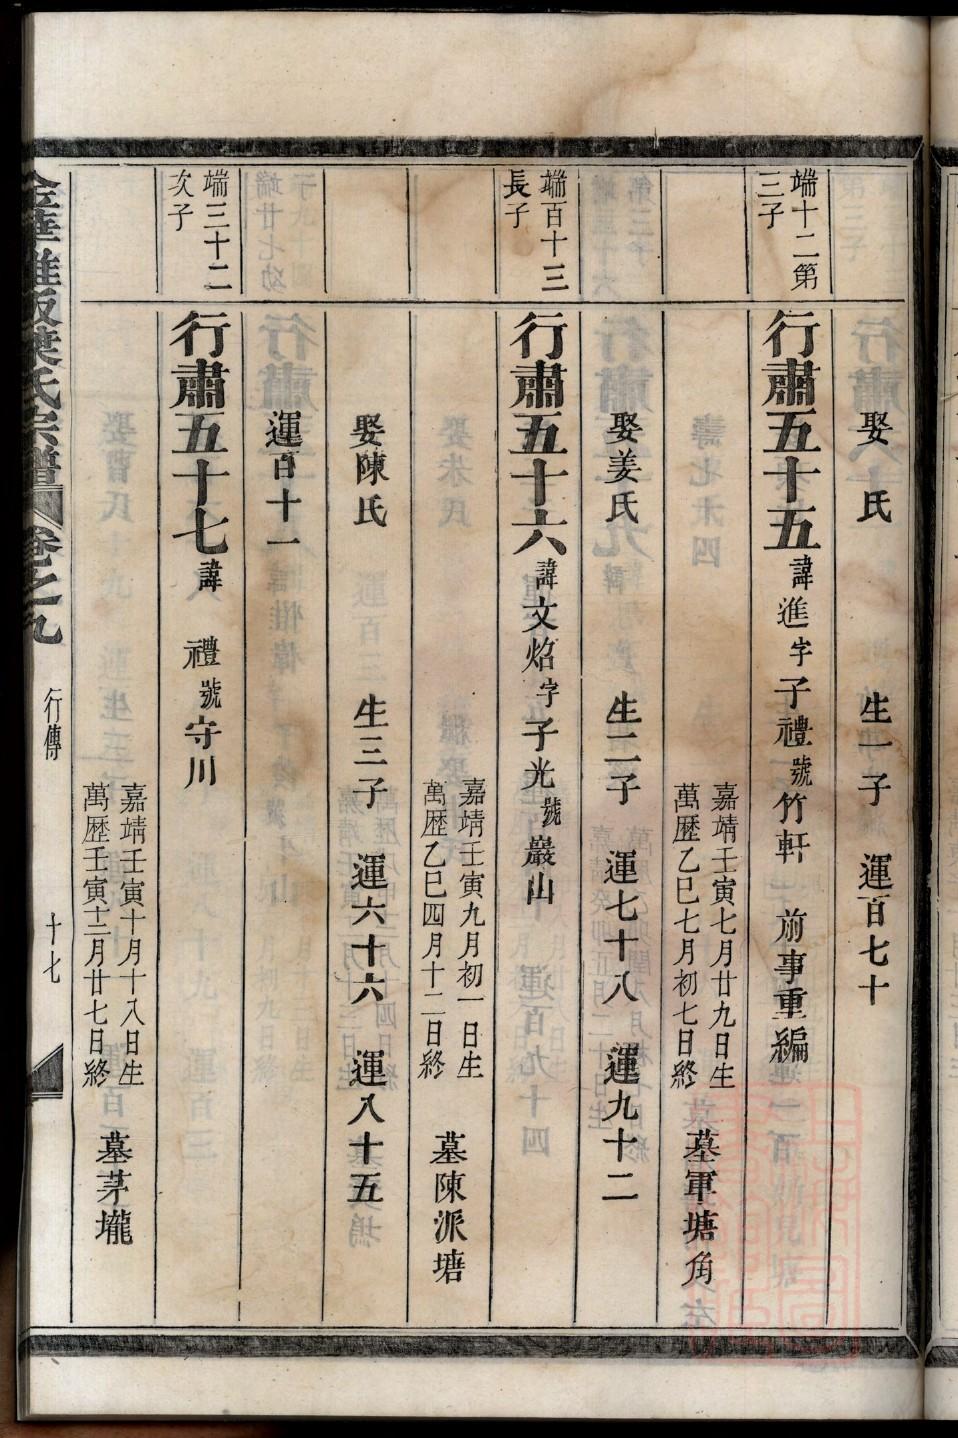 娶 氏 生一子 運百七十
端十二第三子
行肅五十五 諱進字子禮號竹軒 前事重編
嘉靖壬寅七月廿九日生
萬歷乙巳七月初七日終
墓軍塘角
娶姜氏 生二子 運七十八 運九十二
端百十三長子
行肅五十六 諱文焰字子光號巖山
嘉靖壬寅九月初一日生
萬歷乙巳四月十二日終
墓陳派塘
娶陳氏 生三子 運六十六 運八十五
運百十一
端三十二次子
行肅五十七 諱 禮號守川
嘉靖壬寅十月十八日生
萬歷壬寅十二月廿七日終
墓茅壠
葉氏宗譜 卷之九 行傳 十七